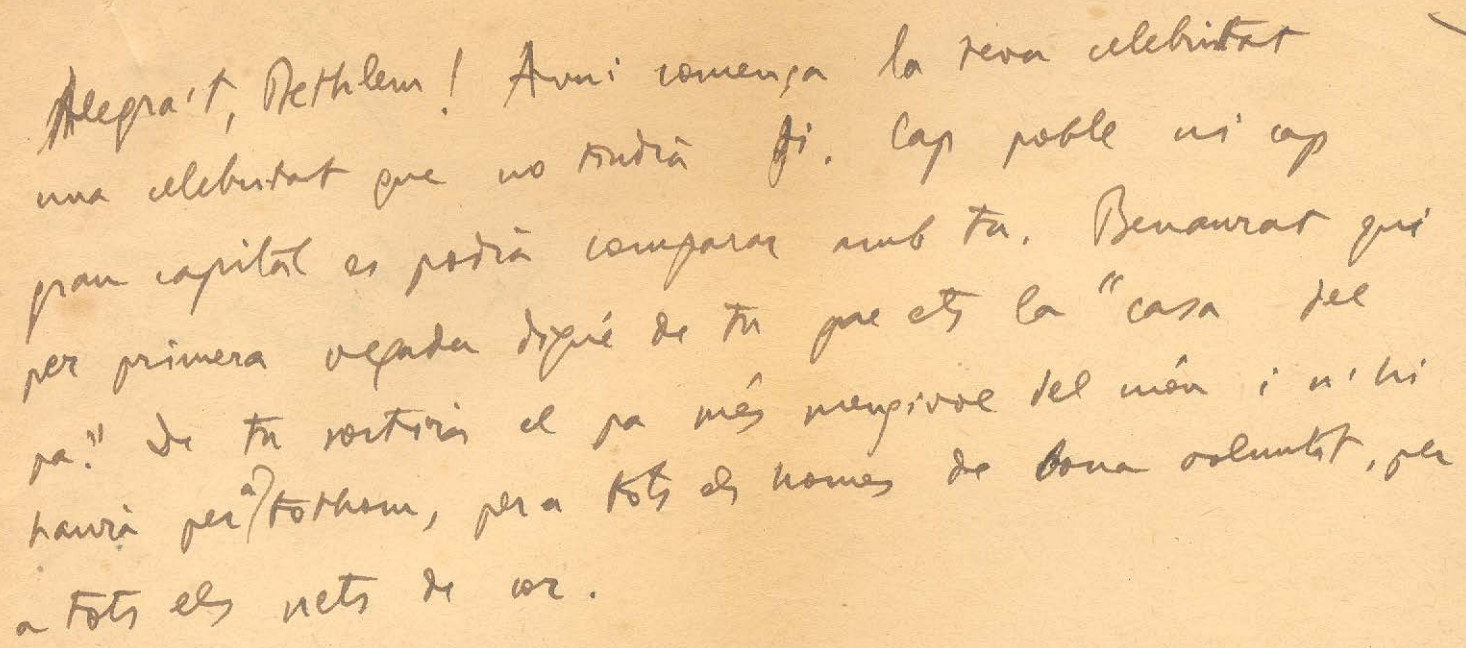 Alegra't, Bethlem! Avui comença la teva celebritat
una celebritat que no tindrà fi. Cap poble ni cap
gran capital es podrà comparar amb tu. Benaurat qui
per primera vegada digué de tu que ets la "casa del
pa." De tu sortirà el pa més mengívol del món i n'hi
haurà per a tothom, per a tots els homes de bona voluntat, per
a tots els nets de cor.